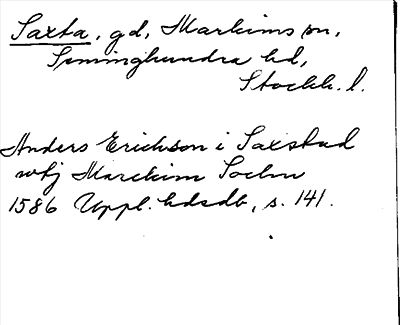 Saxta, gd, Markims sn,
Seminghundra hd,
Stockh. l.
Anders Erichson i Saxstad
utj Marckim Sochn
1586 Uppl. hdsdb, s. 141.